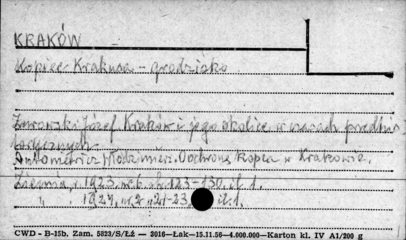 KRAKÓW
Kopiec Krakusa - grodzisko
Żurowski Józef. Kraków i jego okolice w czasach przedhis
torycznych.
Antoniewicz Włodzimierz. Ochrona kopca w Krakowie.
Ziemia, 1923, nr 6, s. 123-130, il. 1.
" 1924, nr 2, s. 21-23, il. 1.
CWD - B-15b. Zam. 5823/S/Łż — 2016—Łak—15.11.56—4.000.000—Karton kl. IV A1/200 g